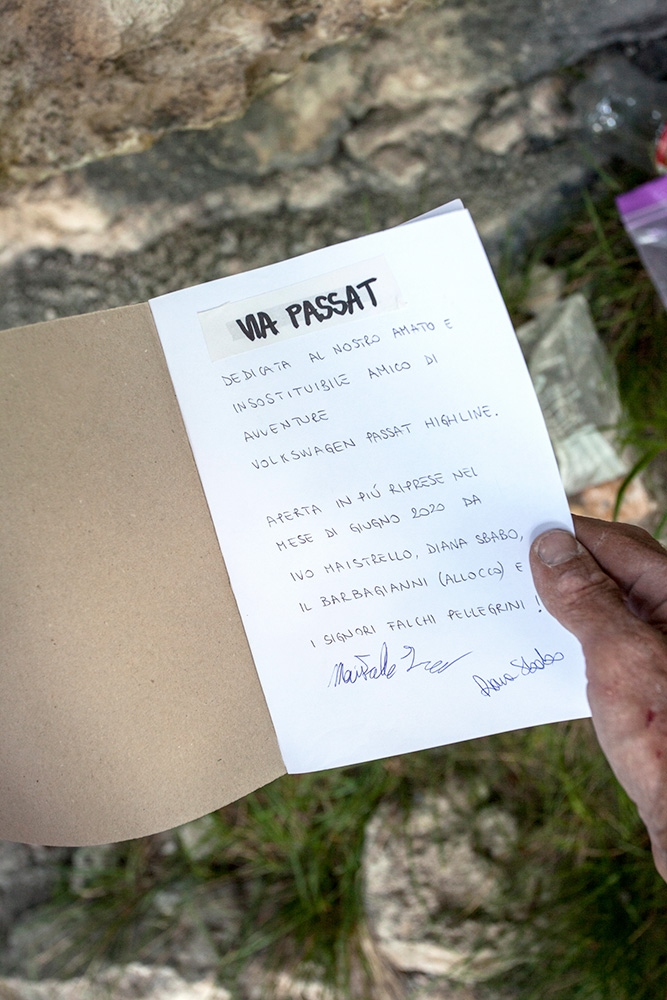 VIA PASSAT
DEDICATA AL NOSTRO AMATO E
INSOSTITUIBILE AMICO DI
AVVENTURE
VOLKSWAGEN PASSAT HIGHLINE.
APERTA IN PIÚ RIPRESE NEL
MESE DI GIUGNO 2020 DA
IVO MAISTRELLO, DIANA SBABO,
IL BARBAGIANNI (ALLOCCO) E
I SIGNORI FALCHI PELLEGRINI !
Diana Sbabo